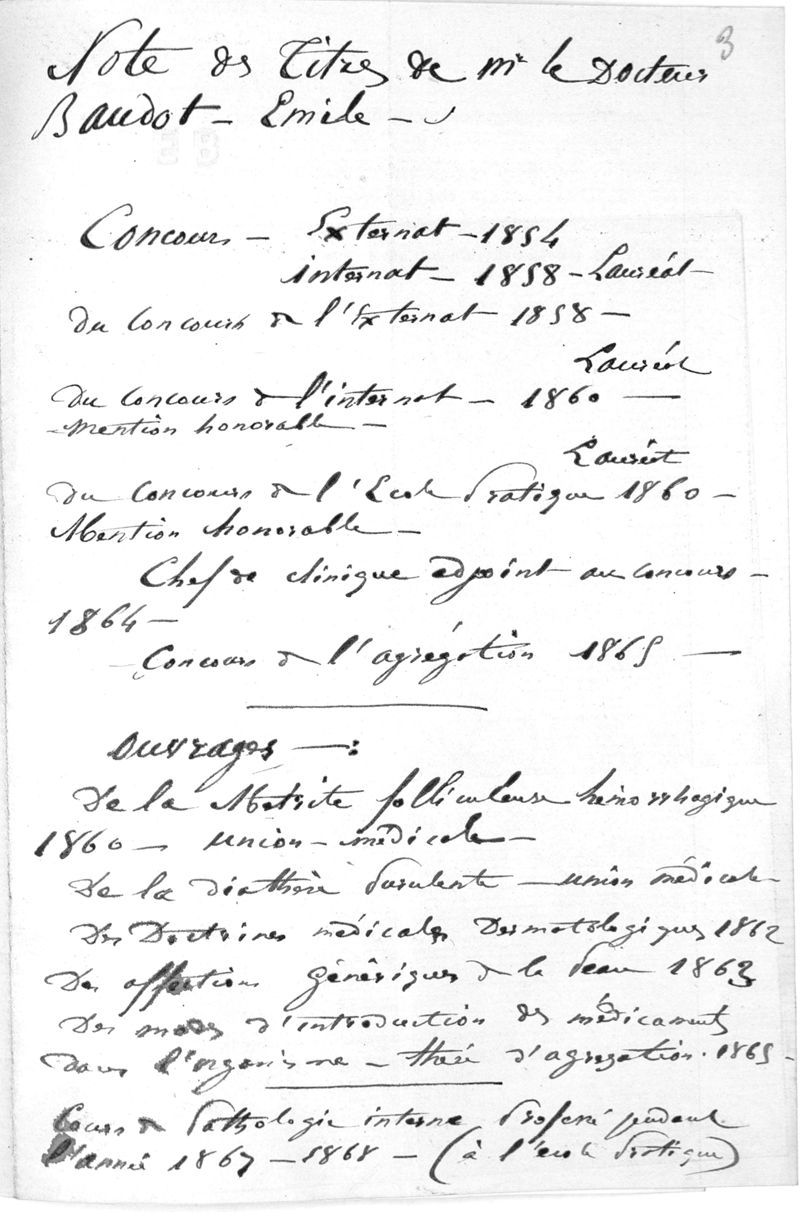 3
Note des Titres de Mr le Docteur
Baudot - Emile -
Concours - Externat - 1854
internat - 1858 - Lauréat -
Du concours de l'Externat 1858 -
Lauréat
Du concours de l'internat - 1860 -
- Mention honorable -
Lauréat
Du concours de l'Ecole Pratique 1860 -
Mention honorable -
Chef de clinique adjoint au concours -
1864 -
- Concours de l'agrégation 1865 -
Ouvrages - :
De la Métrite folliculeuse hémorrhagique
1860 - Union - médicale -
De la diathèse Purulente - union médicale -
Des Doctrines médicales Dermatologiques 1862
Des affections génériques de la Peau 1863
Des modes d'introduction des médicaments
dans l'organisme - thèse d'agrégation. 1865 -
Cours de Pathologie interne Professé pendant
l'année 1867 - 1868 - (à l'école Pratique)